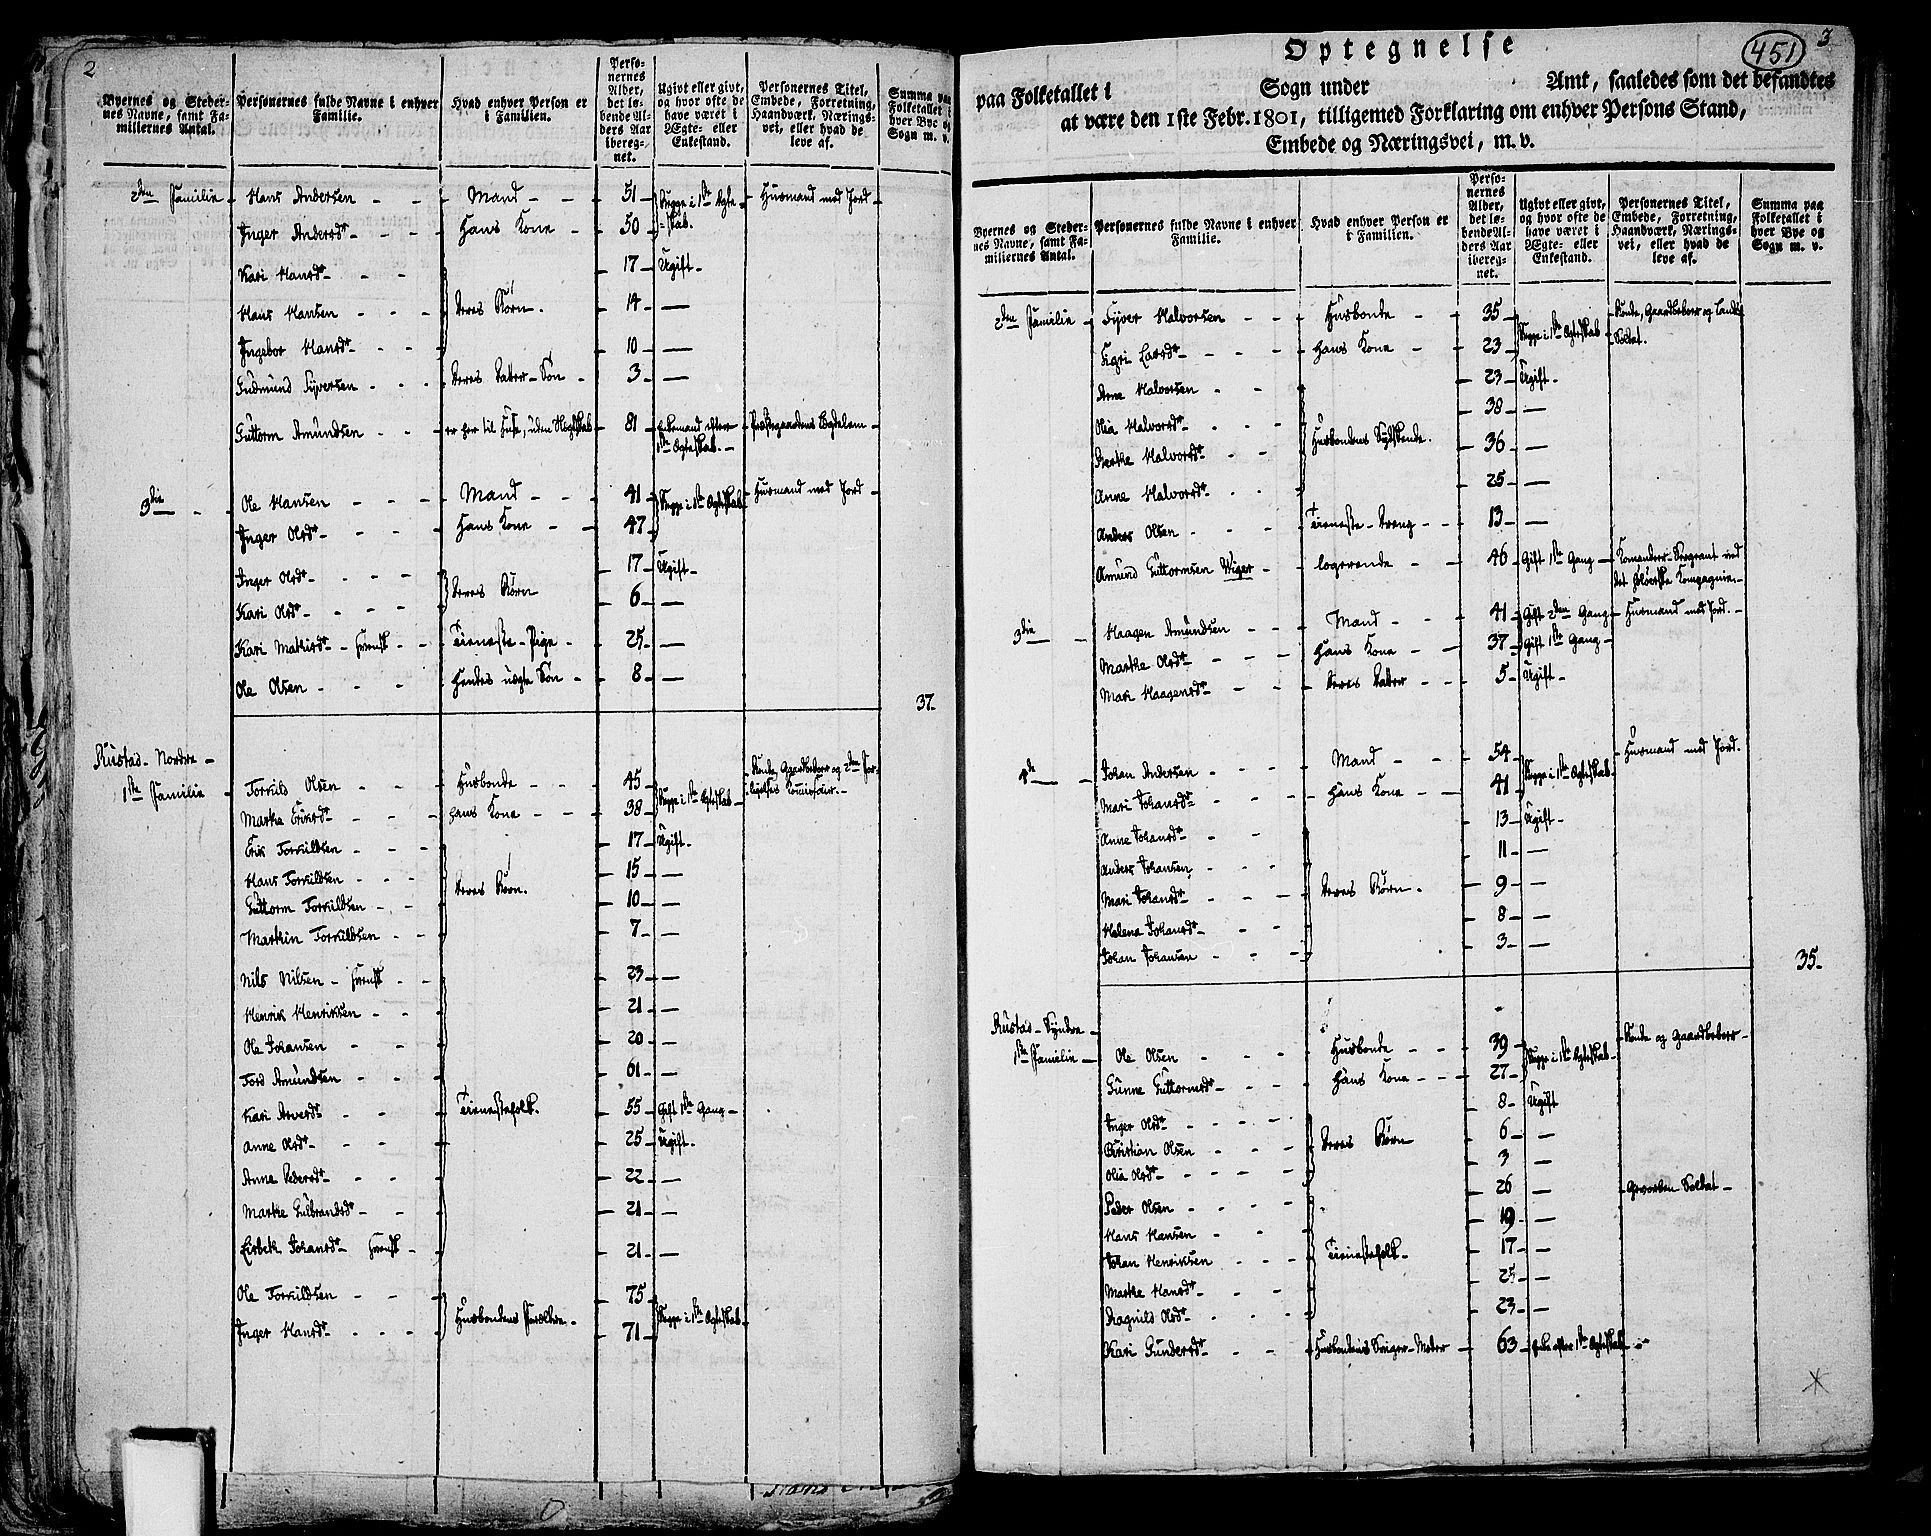 2
Byernes og Steder-
nes Navne, samt Fa-
miliernes Antal.
Personernes fulde Navne i enhver
Familie.
Hvad enhver Person er
i Familien.
Perso-
nernes
Alder,
det lø-
bende Al-
ders Aar
ibereg-
net.
Ugivt eller givt,
og hvor ofte de
have været i
Ægte- eller
Enkestand.
Personernes Titel,
Embede, Forretning,
Haandværk, Nærings-
vei, eller hvad de
leve af.
Summa paa
Folketallet i
hver Bye og
Sogn m. v.
2den Familie Hans Andersen Mand 51 Begge i 1ste Ægte- Huusmand med Jord
Inger Andersdt Hans Kone 50 skab.
Kari Hansdt 17 Ugift
Hans Hansen Deres Børn 14 —
Ingebor Hansdt 10 —
Gudmund Syversen Deres Datter-Søn 3 —
Guttorm Amundsen er her til Huse, uden Slegtskab 81 Enkemand efter
1ste Ægteskab.
3die Ole Hansen Mand 41 Begge i 1ste Ægteskab Huusmand med Jord
Inger Olsdt Hans Kone 47
Inger Olsdt 17 Ugift
Kari Olsdt Deres Børn 6 —
Kari Mathisdt Tieneste-Pige 25 —
Ole Olsen Hendes uægte Søn 8 —
37.
Rustad-Nordre
1ste Familie Torkild Olsen Husbonde 45 Begge i 1ste Ægteskab Bonde, Gaardbeboer og 2den For-
ligelses Komissair.
Marthe Eriksdt Hans Kone 38
Erik Torkildsen 17 Ugift
Hans Torkildsen Deres Børn. 15 —
Guttorm Torkildsen 10 —
Markin Torkildsen 7 —
Nils Nilsen 23 —
Henrik Henriksen 21 —
Ole Johansen 20 —
Tord Amundsen 61 —
Kari Arvesdt Tienestefolk. 55 Gift 1ste Gang
Anne Olsdt 25 Ugift.
Anne Pedersdt 22 —
Marthe Gulbrandsdt 21 —
Lisbeth Johansdt 21 —
Ole Torkildsen Husbondens Forældre 75 Begge i 1ste Ægteskab
Inger Hansdt 71
451
3
Optegnelse
paa Folketallet i Sogn under Amt, saaledes som det befandtes
at være den 1ste Febr. 1801, tilligemed Forklaring om enhver Persons Stand,
Embede og Næringsvei, m. v.
Byernes og Steder-
nes Navne, samt Fa-
miliernes Antal.
Personernes fulde Navne i enhver
Familie.
Hvad enhver Person er
i Familien.
Perso-
nernes
Alder,
det lø-
bende Al-
ders Aar
ibereg-
net.
Ugivt eller givt,
og hvor ofte de
have været i
Ægte- eller
Enkestand.
Personernes Titel,
Embede, Forretning,
Haandværk, Nærings-
vei, eller hvad de
leve af.
Summa paa
Folketallet i
hver Bye og
Sogn m. v.
2den Familie Syver Halvorsen Husbonde 35 Begge i 1ste Ægteskab Bonde, Gaardbeboer og Land-
Soldat.
Kari Larsdt Hans Kone 23
Arne Halvorsen 23 Ugift
Olia Halvorsdt 38 —
Berthe Halvorsdt Husbondens Sydskende. 36 —
Anne Halvorsdt 25 —
Anders Olsen Tieneste-Dreng 13 —
Amund Guttormsen Wiger logerende 46 Gift 1ste Gang
3die Haagen Amundsen Mand 41 Gift 2den Gang Huusmand med Jord.
Marthe Olsdt Hans Kone 37 Gift 1ste Gang
Mari Haagensdt Deres Datter 5 Ugift
4de Johan Andersen Mand 54 Begge i 1ste Ægteskab Huusmand med Jord.
Mari Johansdt Hans Kone 41
Anne Johansdt 13 Ugift
Anders Johansen 11 —
Mari Johansdt Deres Børn. 9 —
Helena Johansdt 8 —
Johan Johansen 3 —
35.
Rustad-Syndre
1ste Familie Ole Olsen Husbonde 39 Begge i 1ste Ægteskab Bonde og Gaardbeboer
Gunne Guttormsdt Hans Kone 27
Inger Olsdt 8 Ugift
Christian Olsen Deres Børn 6 —
Olia Olsdt 3 —
Peder Olsen 26 — Gevorben Soldat
Hans Hansen 19 —
Johan Henriksen Tienestefolk 17 —
Marthe Hansdt 25 —
Ragnild Olsdt 23 —
Kari Gundersdt Husbondens Sviger-Moder 63 Enke efter 1ste Ægteskab